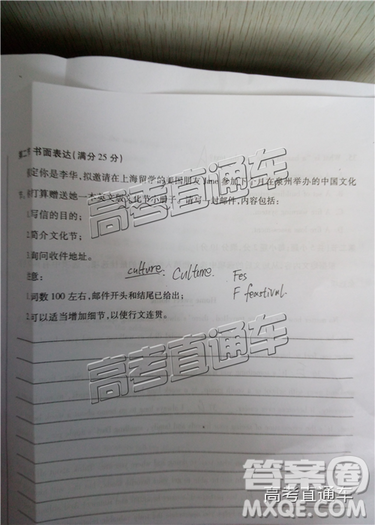 书面表达(满分25分)
定你是李华，拟邀请在上海留学的美国朋友Jane参加下个月在泉州举办的中国文化
打算赠送她一本英文版文化节小册子，请写一封邮件，内容包括：
写信的目的；
简介文化节；
询问收件地址。
意：
culture: Culture. Fes
词数100左右，邮件开头和结尾已给出；
F feastival.
可以适当增加细节，以使行文连贯。
高考直通车
高考直通车
答案圈
高考直通车